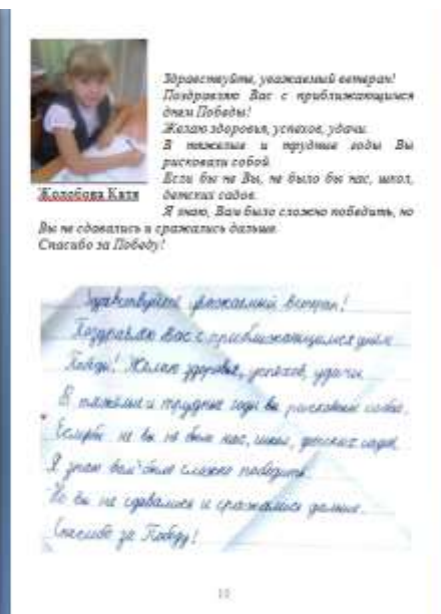 Здравствуйте, уважаемый ветеран!
Поздравляю Вас с приближающимся
днем Победы!
Желаю здоровья, успехов, удачи.
В тяжелые и трудные годы Вы
рисковали собой.
Если бы не Вы, не было бы нас, школ,
детских садов.
Жолобова Катя
Я знаю, Вам было сложно победить, но
Вы не сдавались и сражались дальше.
Спасибо за Победу!
Здравствуйте уважаемый ветеран!
Поздравляю Вас с приближающимся днём
Победы! Желаю здоровья, успехов, удачи.
В тяжёлые и трудные годы вы рисковали собой.
не вы не было нас, школ, детских садов.
Я знаю вам было сложно победить.
Но вы не сдавались и сражались дальше.
Спасибо за Победу!
10